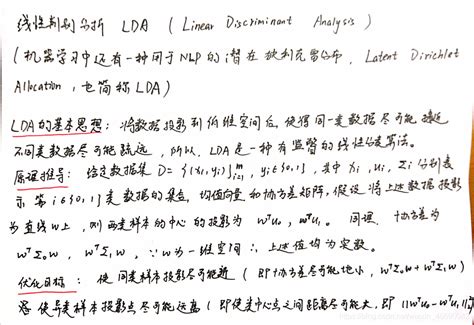 线性判别分析 LDA ( Linear Discriminant Analysis )
( 机器学习中还有一种用于NLP的潜在狄利克雷分布, Latent Dirichlet
Allocation, 也简称LDA )
LDA的基本思想: 将数据投影到低维空间后,使得同一类数据尽可能接近
不同类数据尽可能疏远, 所以, LDA是一种有监督的线性分类算法。
原理推导: 给定数据集 D= {(xi, yi)}ᵢ₌₁ᵐ, yi∈{0,1}, 其中 Xi, ui, Σi 分别表
示第 i∈{0,1} 类数据的集合, 均值向量和协方差矩阵, 假设将上述数据投影
为直线w上, 则两类样本的中心的投影为 wᵀu₀, wᵀu₁。 同理, 协方差为
wᵀΣ₀w, wᵀΣ₁w, ∵ w为一维空间 ∴ 上述值均为实数。
优化目标: 使同类样本投影尽可能近 ( 即协方差尽可能地小, wᵀΣ₀w + wᵀΣ₁w )
使异类样本投影点尽可能远离 ( 即使类中心点之间距离尽可能大, 即 ||wᵀu₀ - wᵀu₁